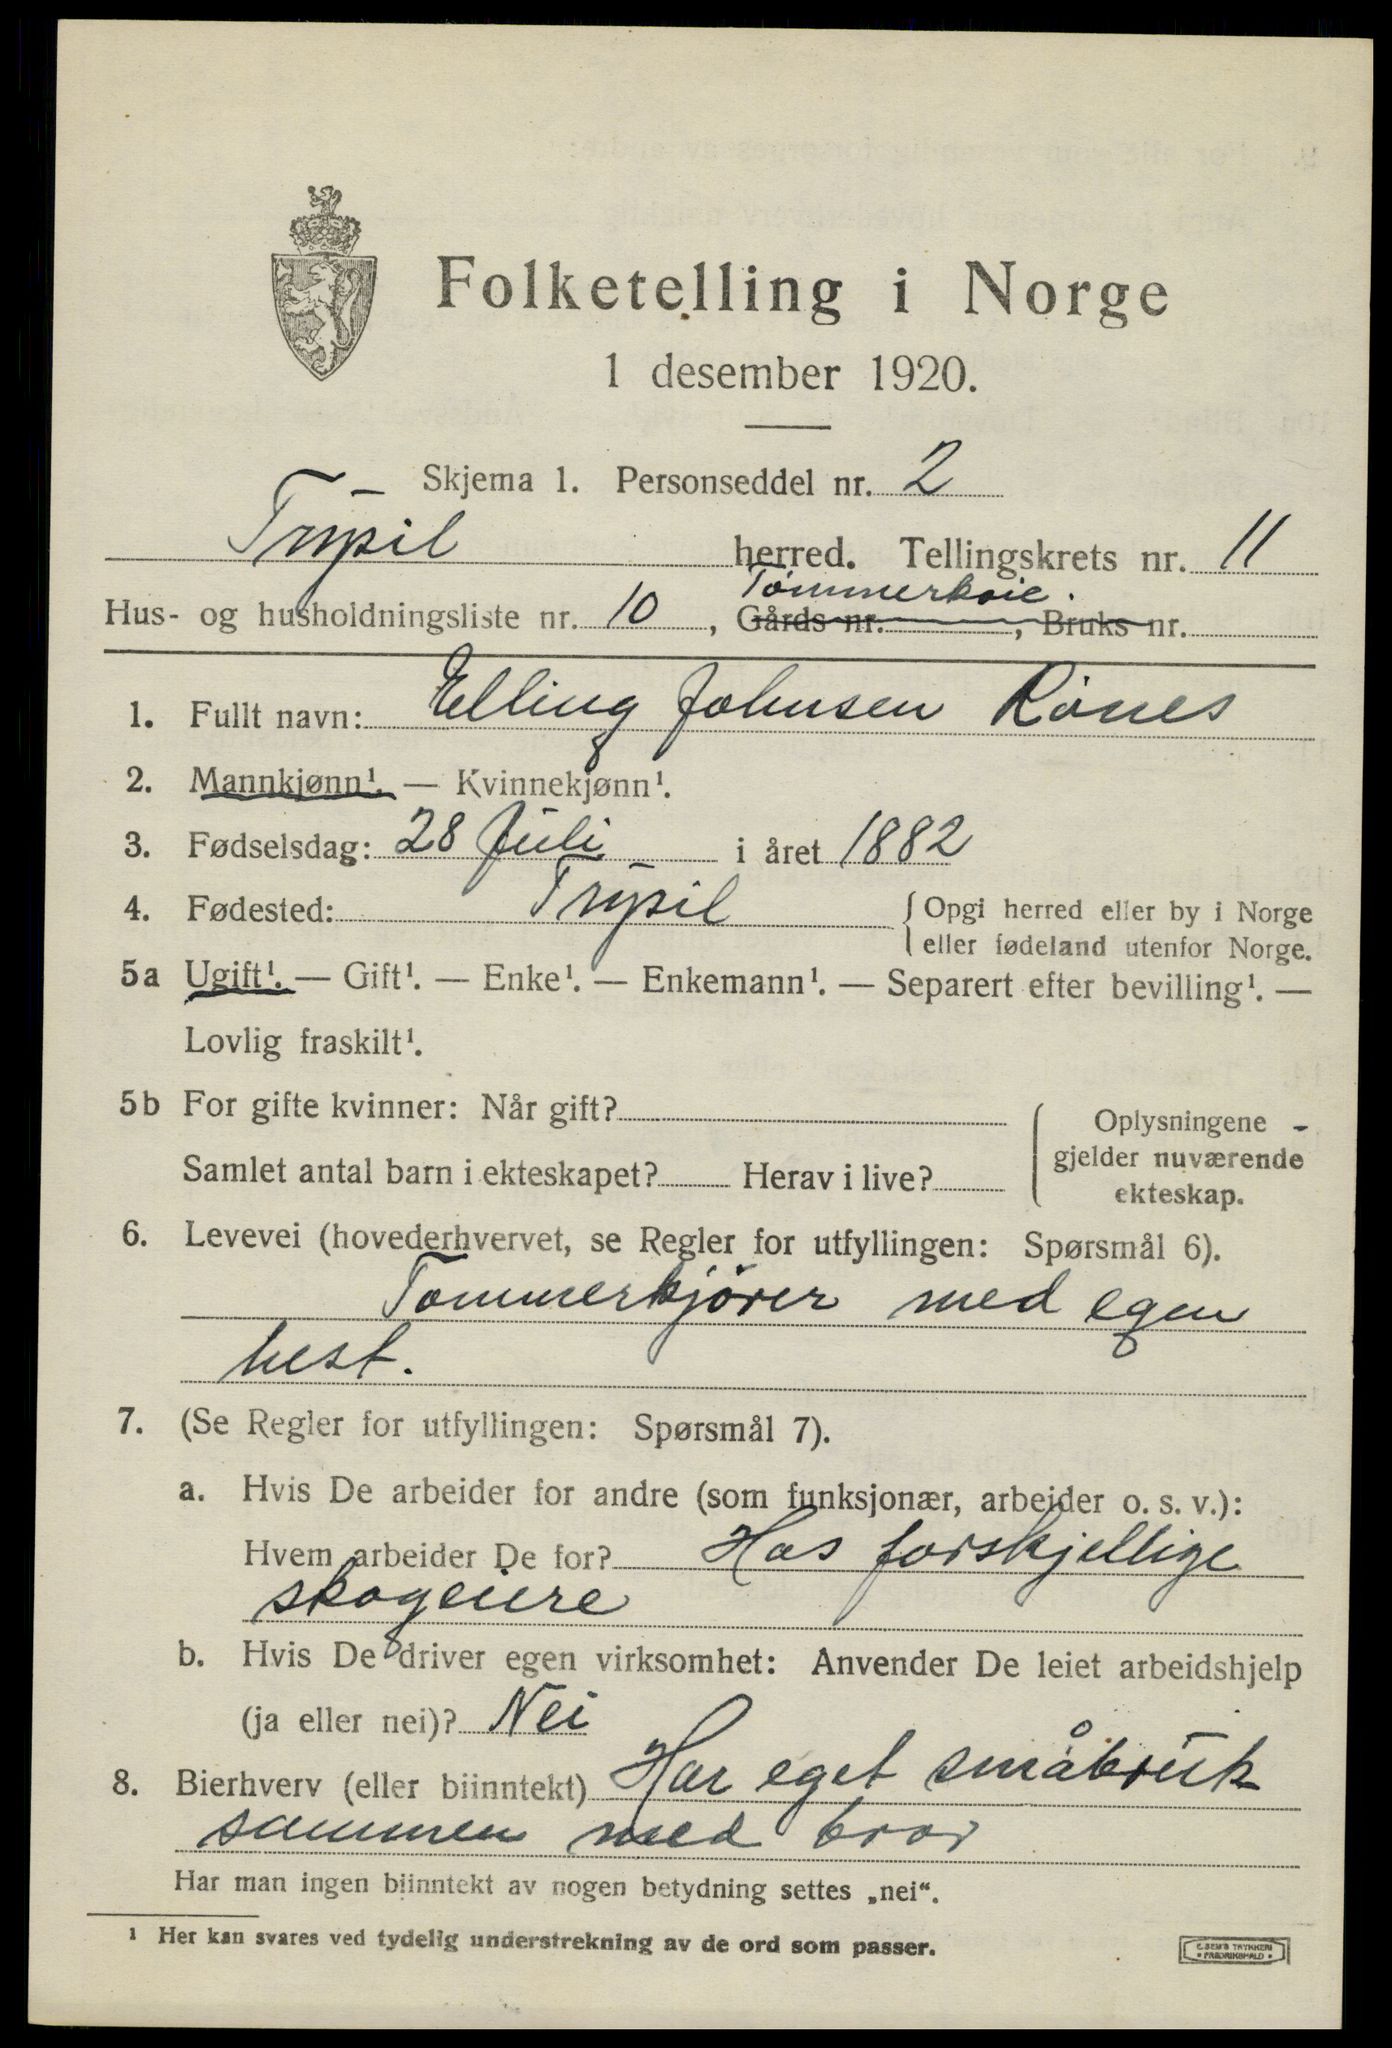 Folketelling i Norge
1 desember 1920.
Skjema 1. Personseddel nr. 2
Trysil herred. Tellingskrets nr. 11
Tømmerkoie.
Hus- og husholdningsliste nr. 10, Gårds nr. , Bruks nr.
1. Fullt navn: Elling Johnsen Rönes
2. Mannkjønn¹. — Kvinnekjønn¹.
3. Fødselsdag: 28 Juli i året 1882
4. Fødested: Trysil { Opgi herred eller by i Norge
eller fødeland utenfor Norge.
5a Ugift¹. — Gift¹. — Enke¹. — Enkemann¹. — Separert efter bevilling¹. —
Lovlig fraskilt¹.
5b For gifte kvinner: Når gift?
Samlet antal barn i ekteskapet? Herav i live?
Oplysningene
gjelder nuværende
ekteskap.
6. Levevei (hovederhvervet, se Regler for utfyllingen: Spørsmål 6).
Tømmerkjörer med egen
hest.
7. (Se Regler for utfyllingen: Spørsmål 7).
a. Hvis De arbeider for andre (som funksjonær, arbeider o. s. v.):
Hvem arbeider De for? Hos forskjellige
skogeiere
b. Hvis De driver egen virksomhet: Anvender De leiet arbeidshjelp
(ja eller nei)? Nei
8. Bierhverv (eller biinntekt) Har eget småbruk
sammen med bror
Har man ingen biinntekt av nogen betydning settes „nei“.
¹ Her kan svares ved tydelig understrekning av de ord som passer.
E. SEM'S TRYKKERI
FREDRIKSHALD